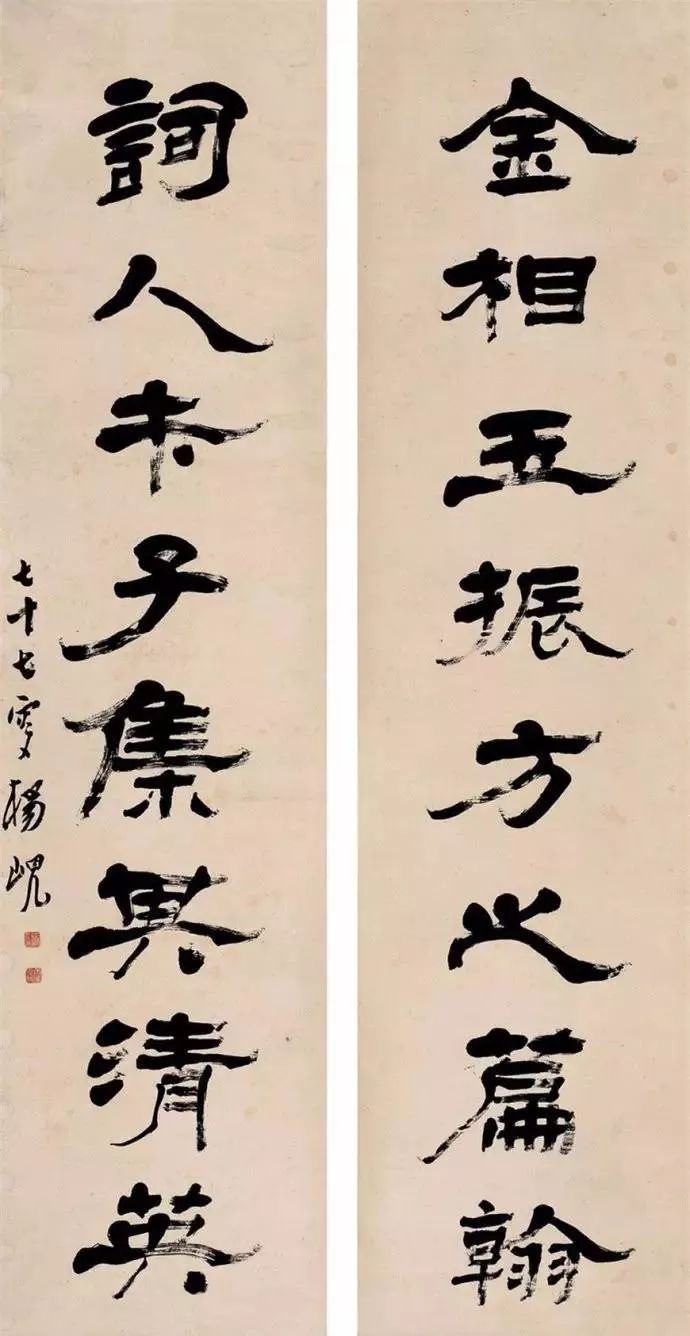 金相玉振方之篇翰
詞人才子集其清英
七十七叟楊峴